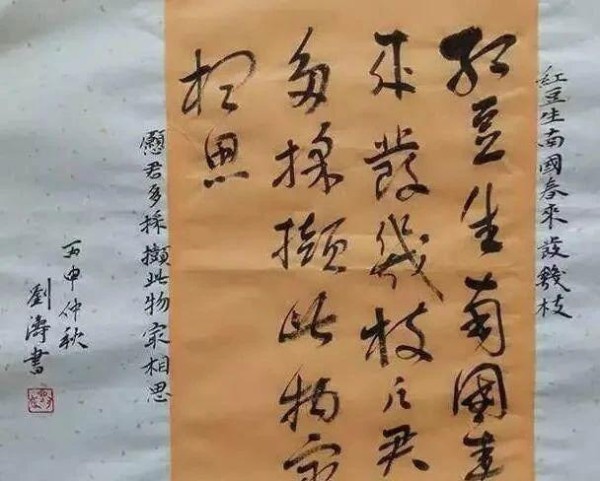 紅豆生南國春來發幾枝
紅豆生南國春
來發幾枝願君
多採擷此物㝡
相思
願君多採擷此物㝡相思
丙申仲秋
劉濤書